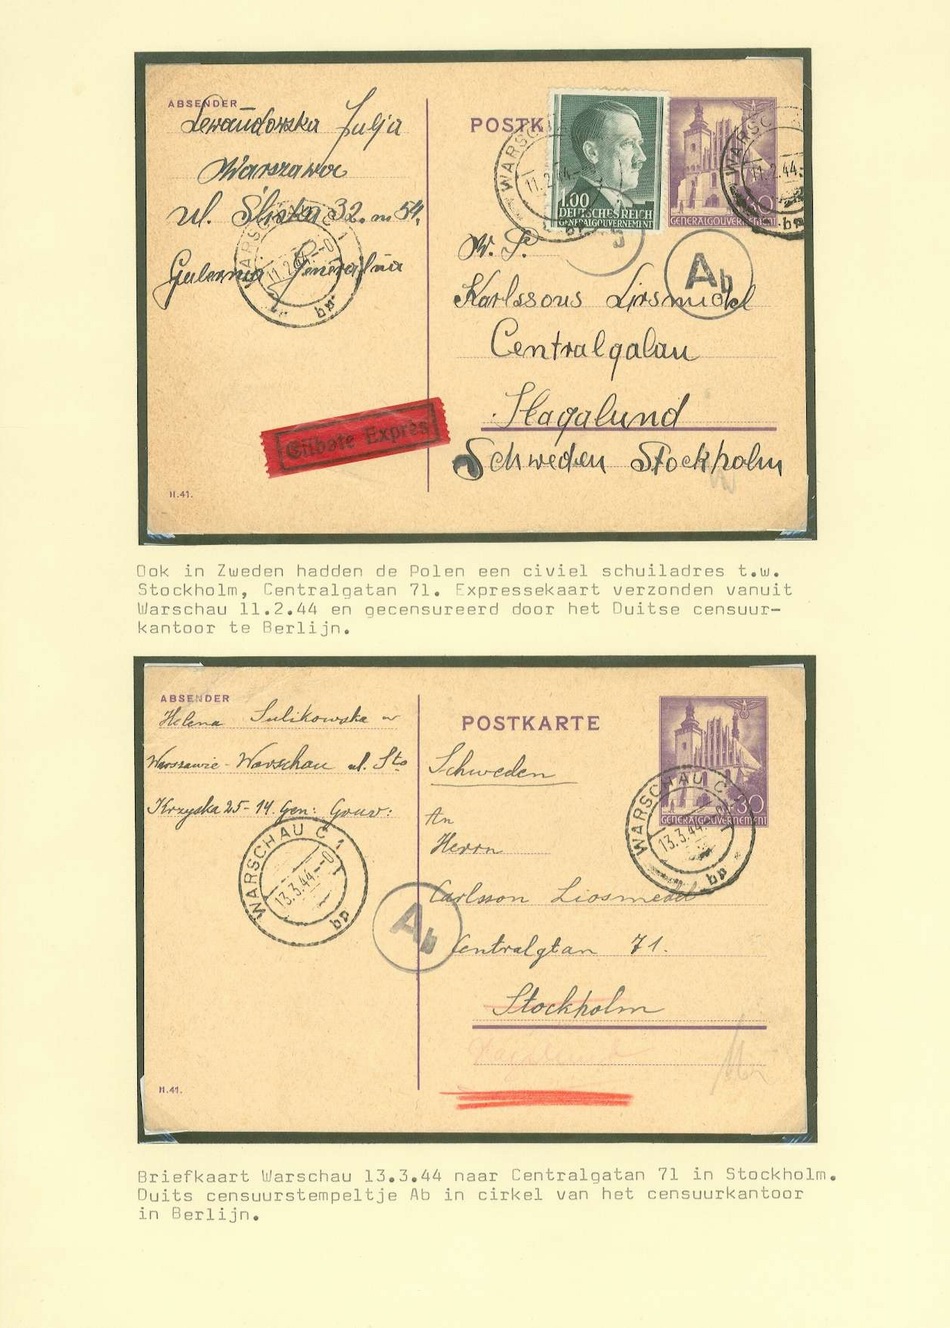 ABSENDER
Lewandowska Julja
Warszawa
ul. Śliska 32. m 54.
Gubernia Generalna
WARSCHAU C 1
11.2.44.-0
bp
II.41.
Eilbote Expres
POSTK
1.00
DEUTSCHES REICH
GENERALGOUVERNEMENT
WARSCH
11.2.44.-
30
GENERALGOUVERNEMENT
WARSCH
11.2.44.-
bp
b
Ab
W. P.
Karlssous Lirsmidel
Centralgalau
Hagalund
Schweden Stockholm
Ook in Zweden hadden de Polen een civiel schuiladres t.w.
Stockholm, Centralgatan 71. Expressekaart verzonden vanuit
Warschau 11.2.44 en gecensureerd door het Duitse censuur-
kantoor te Berlijn.
ABSENDER
Helena Sulikowska w
Warszawie - Warschau ul. Sto
Krzyska 25-14. Gen: Gouv:
WARSCHAU C 1
13.3.44.-0
bp
Ab
II.41.
POSTKARTE
30
GENERALGOUVERNEMENT
WARSCHAU C 1
13.3.44.
bp
Schweden
An
Herrn
Carlsson Liosmead
Centralgtan 71.
Stockholm
Hagalund
Briefkaart Warschau 13.3.44 naar Centralgatan 71 in Stockholm.
Duits censuurstempeltje Ab in cirkel van het censuurkantoor
in Berlijn.